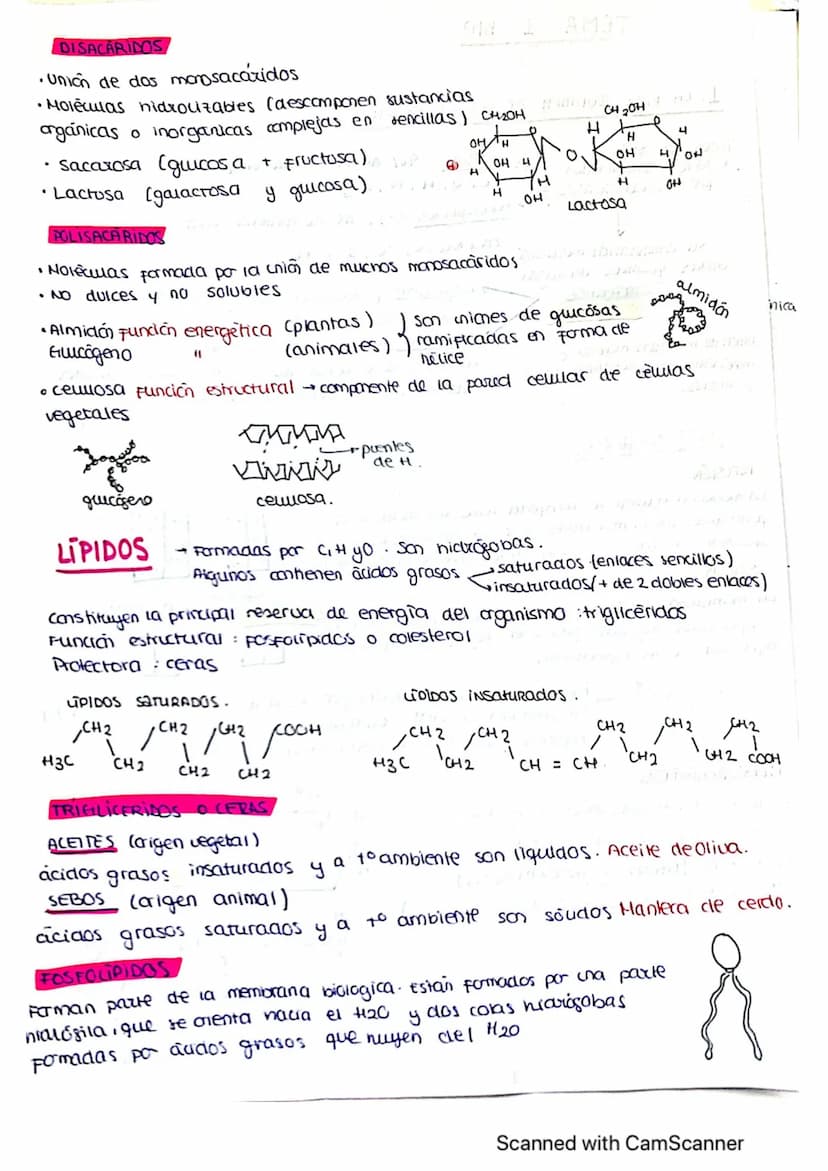 DISACÁRIDOS
· Unión de dos monosacáridos
· Moléculas hidrolizables (descomponen sustancias
orgánicas o inorgánicas complejas en sencillas)
· Sacarosa (glucosa + fructosa)
· Lactosa (galactosa y glucosa)
CH2OH
CH2OH
H
O
O
H
OH
H
H
H
OH
H
O
OH
H
OH
H
H
H
H
OH
H
OH
Lactosa
POLISACÁRIDOS
· Moléculas formada por la unión de muchos monosacáridos
· NO dulces y no solubles
· Almidón Función energética (plantas) } son uniones de glucosas
Glucógeno " (animales) } ramificadas en forma de
hélice
almidón
nica
○ celulosa Función estructural → componente de la pared celular de células
vegetales
glucógeno
puentes
de H.
celulosa.
LÍPIDOS → Formadas por C, H y O. Son hidrófobas.
Algunos contienen ácidos grasos → saturados (enlaces sencillos)
→ insaturados (+ de 2 dobles enlaces)
Constituyen la principal reserva de energía del organismo : triglicéridos
Función estructural : Fosfolípidos o colesterol
Protectora : ceras
LÍPIDOS SATURADOS.
CH2 CH2 CH2 COOH
H3C CH2 CH2 CH2
LÍPIDOS INSATURADOS.
CH2 CH2 CH2 CH2 CH2
H3C CH2 CH = CH CH2 CH2 COOH
TRIGLICERIDOS O CERAS
ACEITES (origen vegetal)
ácidos grasos insaturados y a Tº ambiente son líquidos. Aceite de Oliva.
SEBOS (origen animal)
ácidos grasos saturados y a Tº ambiente son sólidos Manteca de cerdo.
FOSFOLÍPIDOS
Forman parte de la membrana biológica. Están formados por una parte
hidrófila, que se orienta hacia el H2O y dos colas hidrófobas
formadas por ácidos grasos que huyen del H2O
Scanned with CamScanner